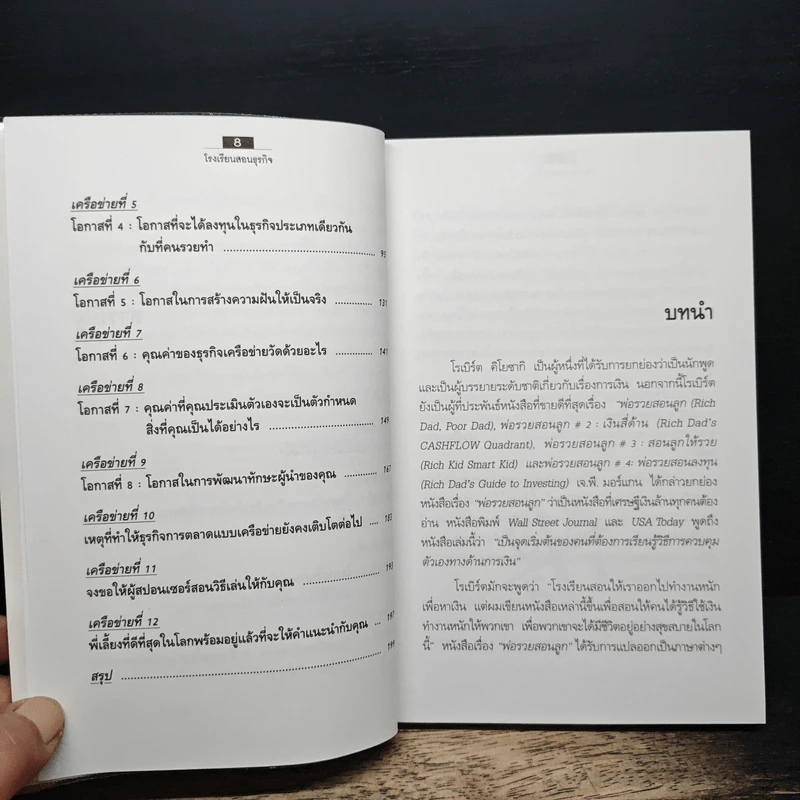 8
โรงเรียนสอนธุรกิจ
เครือข่ายที่ 5
โอกาสที่ 4 : โอกาสที่จะได้ลงทุนในธุรกิจประเภทเดียวกัน
กับที่คนรวยทำ ........................................ 95
เครือข่ายที่ 6
โอกาสที่ 5 : โอกาสในการสร้างความฝันให้เป็นจริง ............. 131
เครือข่ายที่ 7
โอกาสที่ 6 : คุณค่าของธุรกิจเครือข่ายวัดด้วยอะไร ............. 141
เครือข่ายที่ 8
โอกาสที่ 7 : คุณค่าที่คุณประเมินตัวเองจะเป็นตัวกำหนด
สิ่งที่คุณเป็นได้อย่างไร ............................... 149
เครือข่ายที่ 9
โอกาสที่ 8 : โอกาสในการพัฒนาทักษะผู้นำของคุณ ........... 167
เครือข่ายที่ 10
เหตุที่ทำให้ธุรกิจการตลาดแบบเครือข่ายยังคงเติบโตต่อไป .... 183
เครือข่ายที่ 11
จงขอให้ผู้สปอนเซอร์สอนวิธีเล่นให้กับคุณ .................... 193
เครือข่ายที่ 12
พี่เลี้ยงที่ดีที่สุดในโลกพร้อมอยู่แล้วที่จะให้คำแนะนำกับคุณ .... 197
สรุป ................................................................ 199
บทนำ
โรเบิร์ต คิโยซากิ เป็นผู้หนึ่งที่ได้รับการยกย่องว่าเป็นนักพูด
และเป็นผู้บรรยายระดับชาติเกี่ยวกับเรื่องการเงิน นอกจากนี้โรเบิร์ต
ยังเป็นผู้ที่ประพันธ์หนังสือที่ขายดีที่สุดเรื่อง "พ่อรวยสอนลูก (Rich
Dad, Poor Dad), พ่อรวยสอนลูก # 2 : เงินสี่ด้าน (Rich Dad's
CASHFLOW Quadrant), พ่อรวยสอนลูก # 3 : สอนลูกให้รวย
(Rich Kid Smart Kid) และพ่อรวยสอนลูก # 4: พ่อรวยสอนลงทุน
(Rich Dad's Guide to Investing) เจ.พี. มอร์แกน ได้กล่าวยกย่อง
หนังสือเรื่อง "พ่อรวยสอนลูก" ว่าเป็นหนังสือที่เศรษฐีเงินล้านทุกคนต้อง
อ่าน หนังสือพิมพ์ Wall Street Journal และ USA Today พูดถึง
หนังสือเล่มนี้ว่า "เป็นจุดเริ่มต้นของคนที่ต้องการเรียนรู้วิธีการควบคุม
ตัวเองทางด้านการเงิน"
โรเบิร์ตมักจะพูดว่า "โรงเรียนสอนให้เราออกไปทำงานหนัก
เพื่อหาเงิน แต่ผมเขียนหนังสือเหล่านี้ขึ้นเพื่อสอนให้คนได้รู้วิธีใช้เงิน
ทำงานหนักให้พวกเขา เพื่อพวกเขาจะได้มีชีวิตอยู่อย่างสุขสบายในโลก
นี้" หนังสือเรื่อง "พ่อรวยสอนลูก" ได้รับการแปลออกเป็นภาษาต่างๆ